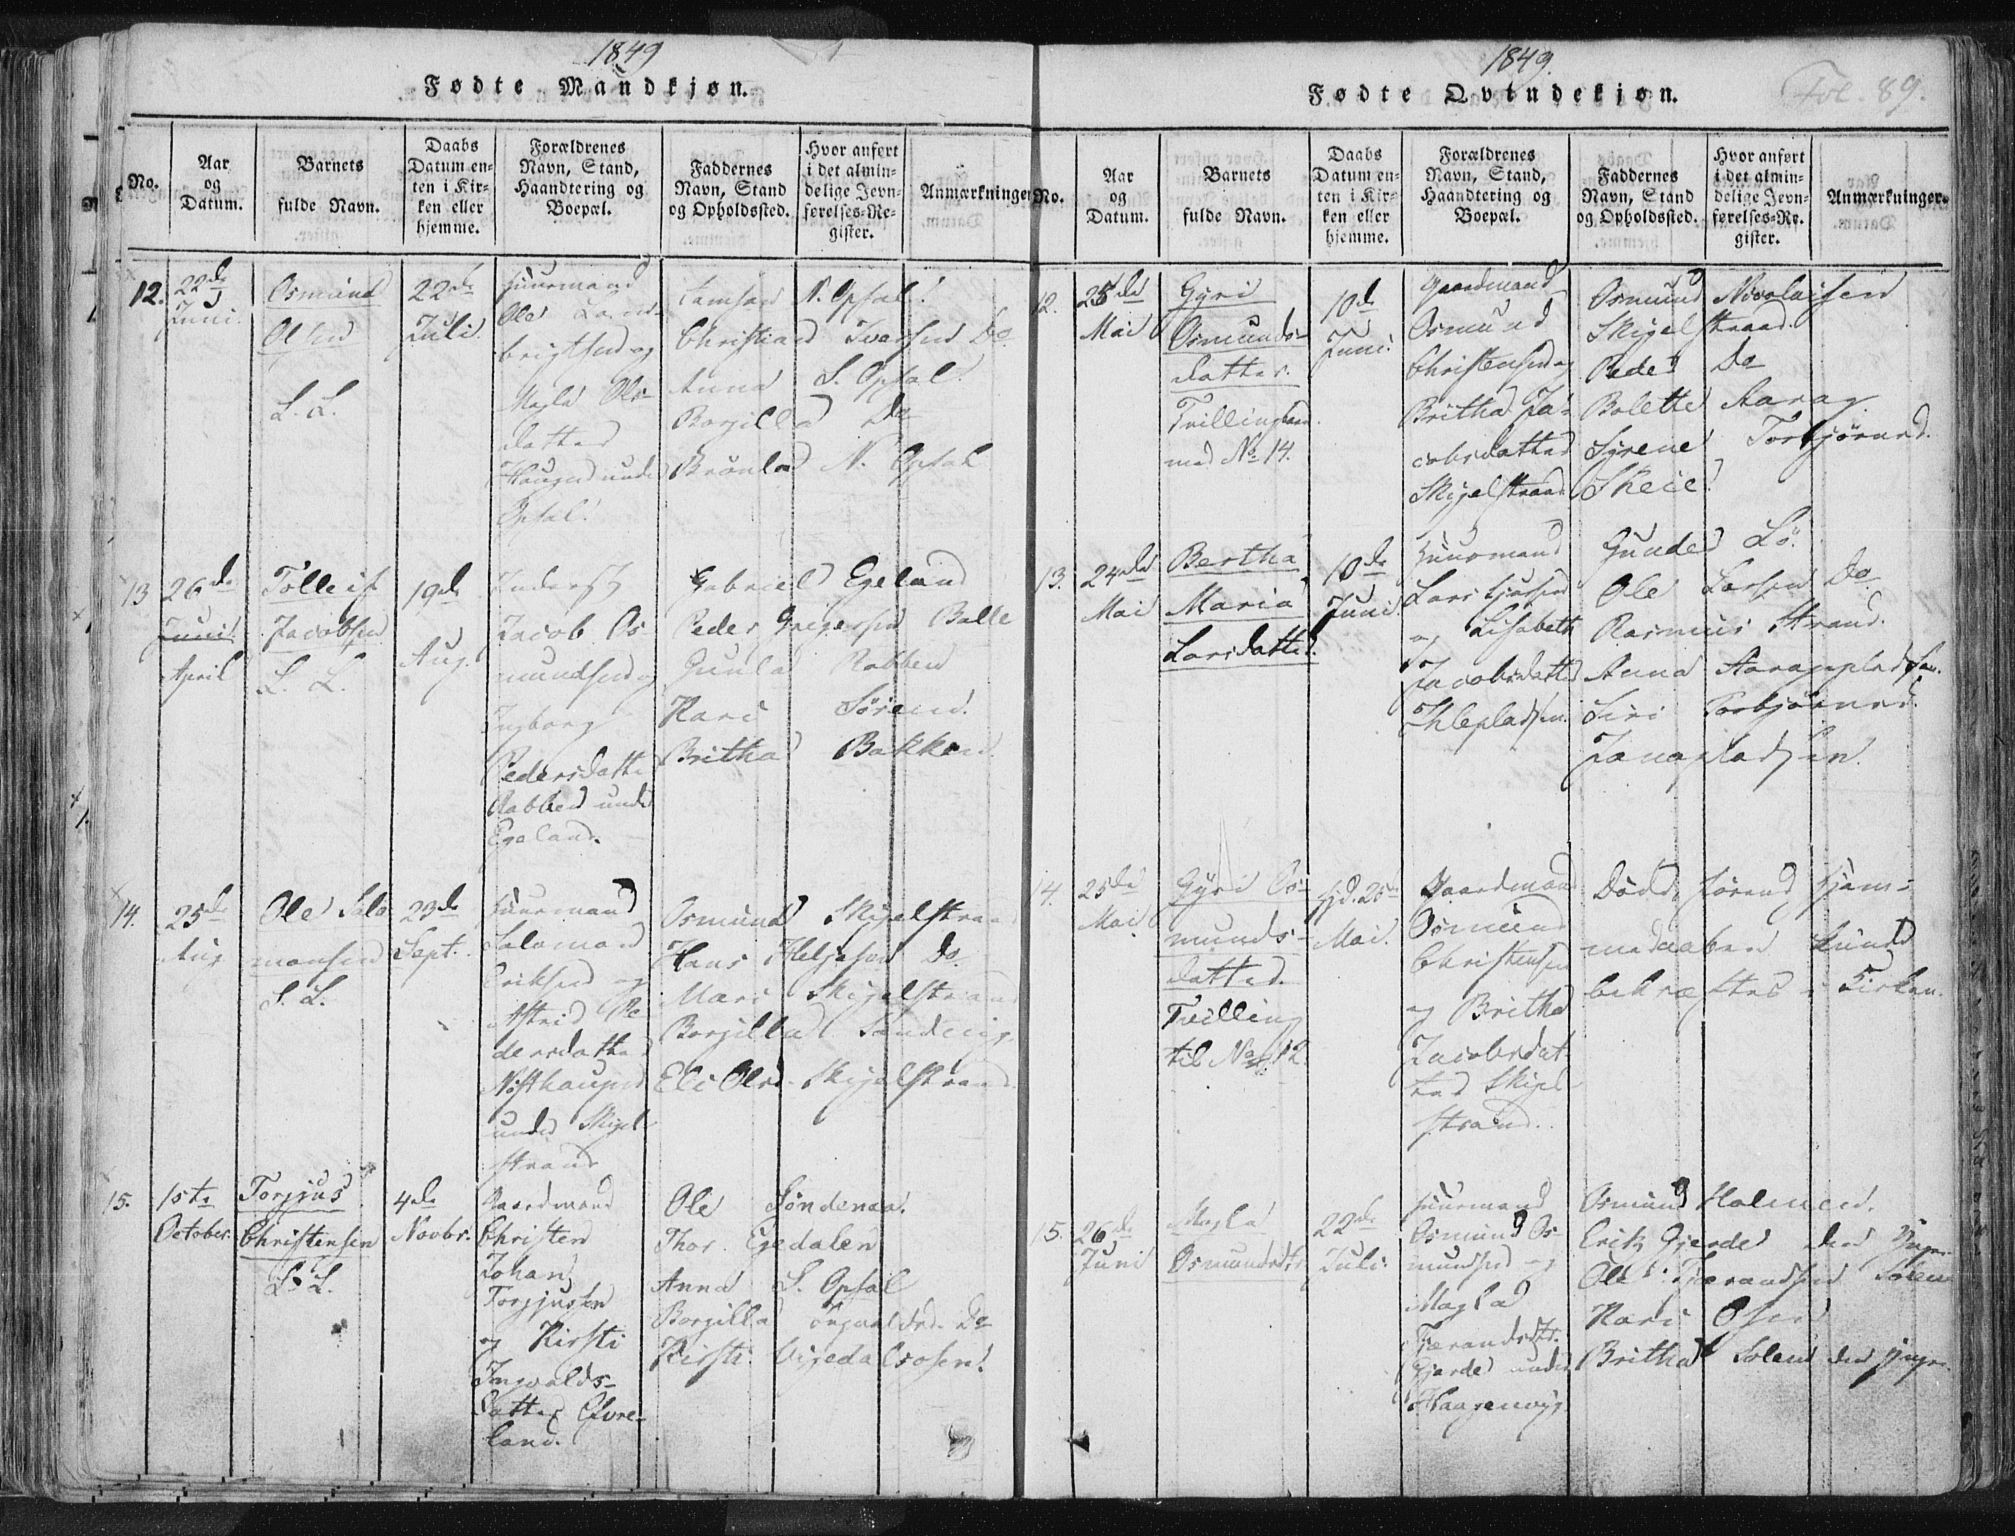 1849
Fødte Mandkjøn.
No.
Aar og Datum.
Barnets fulde Navn.
Daabs Datum enten i Kirken eller hjemme.
Forældrenes Navn, Stand, Haandtering og Boepæl.
Faddernes Navn, Stand og Opholdssted.
Hvor anført i det almindelige Jevnførelses-Register.
Anmærkninger.
12.
22de
Juni.
Osmund
Olsen
L. L.
22de
Juli.
Huusmand
Ole
brigtsen og
Magla Ols-
datter
Haugen under
Opsal.
N. Opsal.
Christian Ivarsen Do
Anna S. Opsal.
Borgilla Do
N. Opsal
13
26de
Juni
April
Tolleif
Jacobsen
L. L.
19de
Aug.
Jacob Os
mundsen og
Ingborg
Pedersdatter
Rabben under
Egeland.
Gabriel Egeland
Peder Gregersen Balle
Gunla Rabben
Kari Søreim.
Britha Bakken
14.
25de
Aug
Ole Salo
monsen
L. L.
23de
Sept.
Huusmand
Salomon
Eriksen og
Astrid Pe
dersdatter
under Skigel
strand
Osmund Skigelstrand
Hans Helgesen Do.
Mari Skigelstrand
Borgilla Sandvig.
Eli Olsd. Skigelstrand.
15.
1ste
October.
Torgjus
Christensen
L. L.
4de
Novbr.
Gaardmand
Christen
Johan
Torgjussen
og Kirsti
Ingvalds-
datter Efvre-
land.
Ole Søndenaa.
Thor Egedalen
Anna S. Opsal
Borgilla Ingvaldsd. Do
Kirsti Vigedalsosen.
1849.
Fødte Qvindekjøn.
Fol. 89.
No.
Aar og Datum.
Barnets fulde Navn.
Daabs Datum enten i Kirken eller hjemme.
Forældrenes Navn, Stand, Haandtering og Boepæl.
Faddernes Navn, Stand og Opholdssted.
Hvor anført i det almindelige Jevnførelses-Re-gister.
Anmærkninger.
12.
25de
Mai
Gyri
Osmunds-
datter.
Tvillingbarn
med No 14.
10de
Juni.
Gaardmand
Osmund
Christensen og
Britha Ja-
cobsdatter
Skigelstrand
Osmund Nicolaisen
Skigelstrand.
Peder Do
Bolette Aarag.
Syrene Torbjørnsd.
Skeie.
13.
24de
Mai
Bertha
Maria
Larsdatter.
10de
Juni.
Huusmand
Lars
og Lisabeth
Jacobsdatter
Ihlepladsen.
Gunder Lø.
Ole Larsen Do
Rasmus Strand.
Anna Aaragpladsen.
Siri Torbjørnsd.
14.
25de
Mai
Gyri Os-
munds-
datter.
Tvilling
til No 12.
Hjd. 25de
Mai.
Gaardmand
Osmund
Christensen
og Britha
Jacobsdat-
ter Skigel
strand.
Døde førend Hjem-
medaaben kunde
bekræftes i Kirken.
15.
26de
Juni
Magla
Osmundsdtr
22de
Juli.
Huusmand
Osmund Os
mundsen og
Magla
Tjerandsdtr.
Gjerde under
Haagenvig.
Osmund Holmen.
Erik Gjerde den Yngre
Ole Tjerandsen Solem
Kari Osen
Britha Solem den yngre